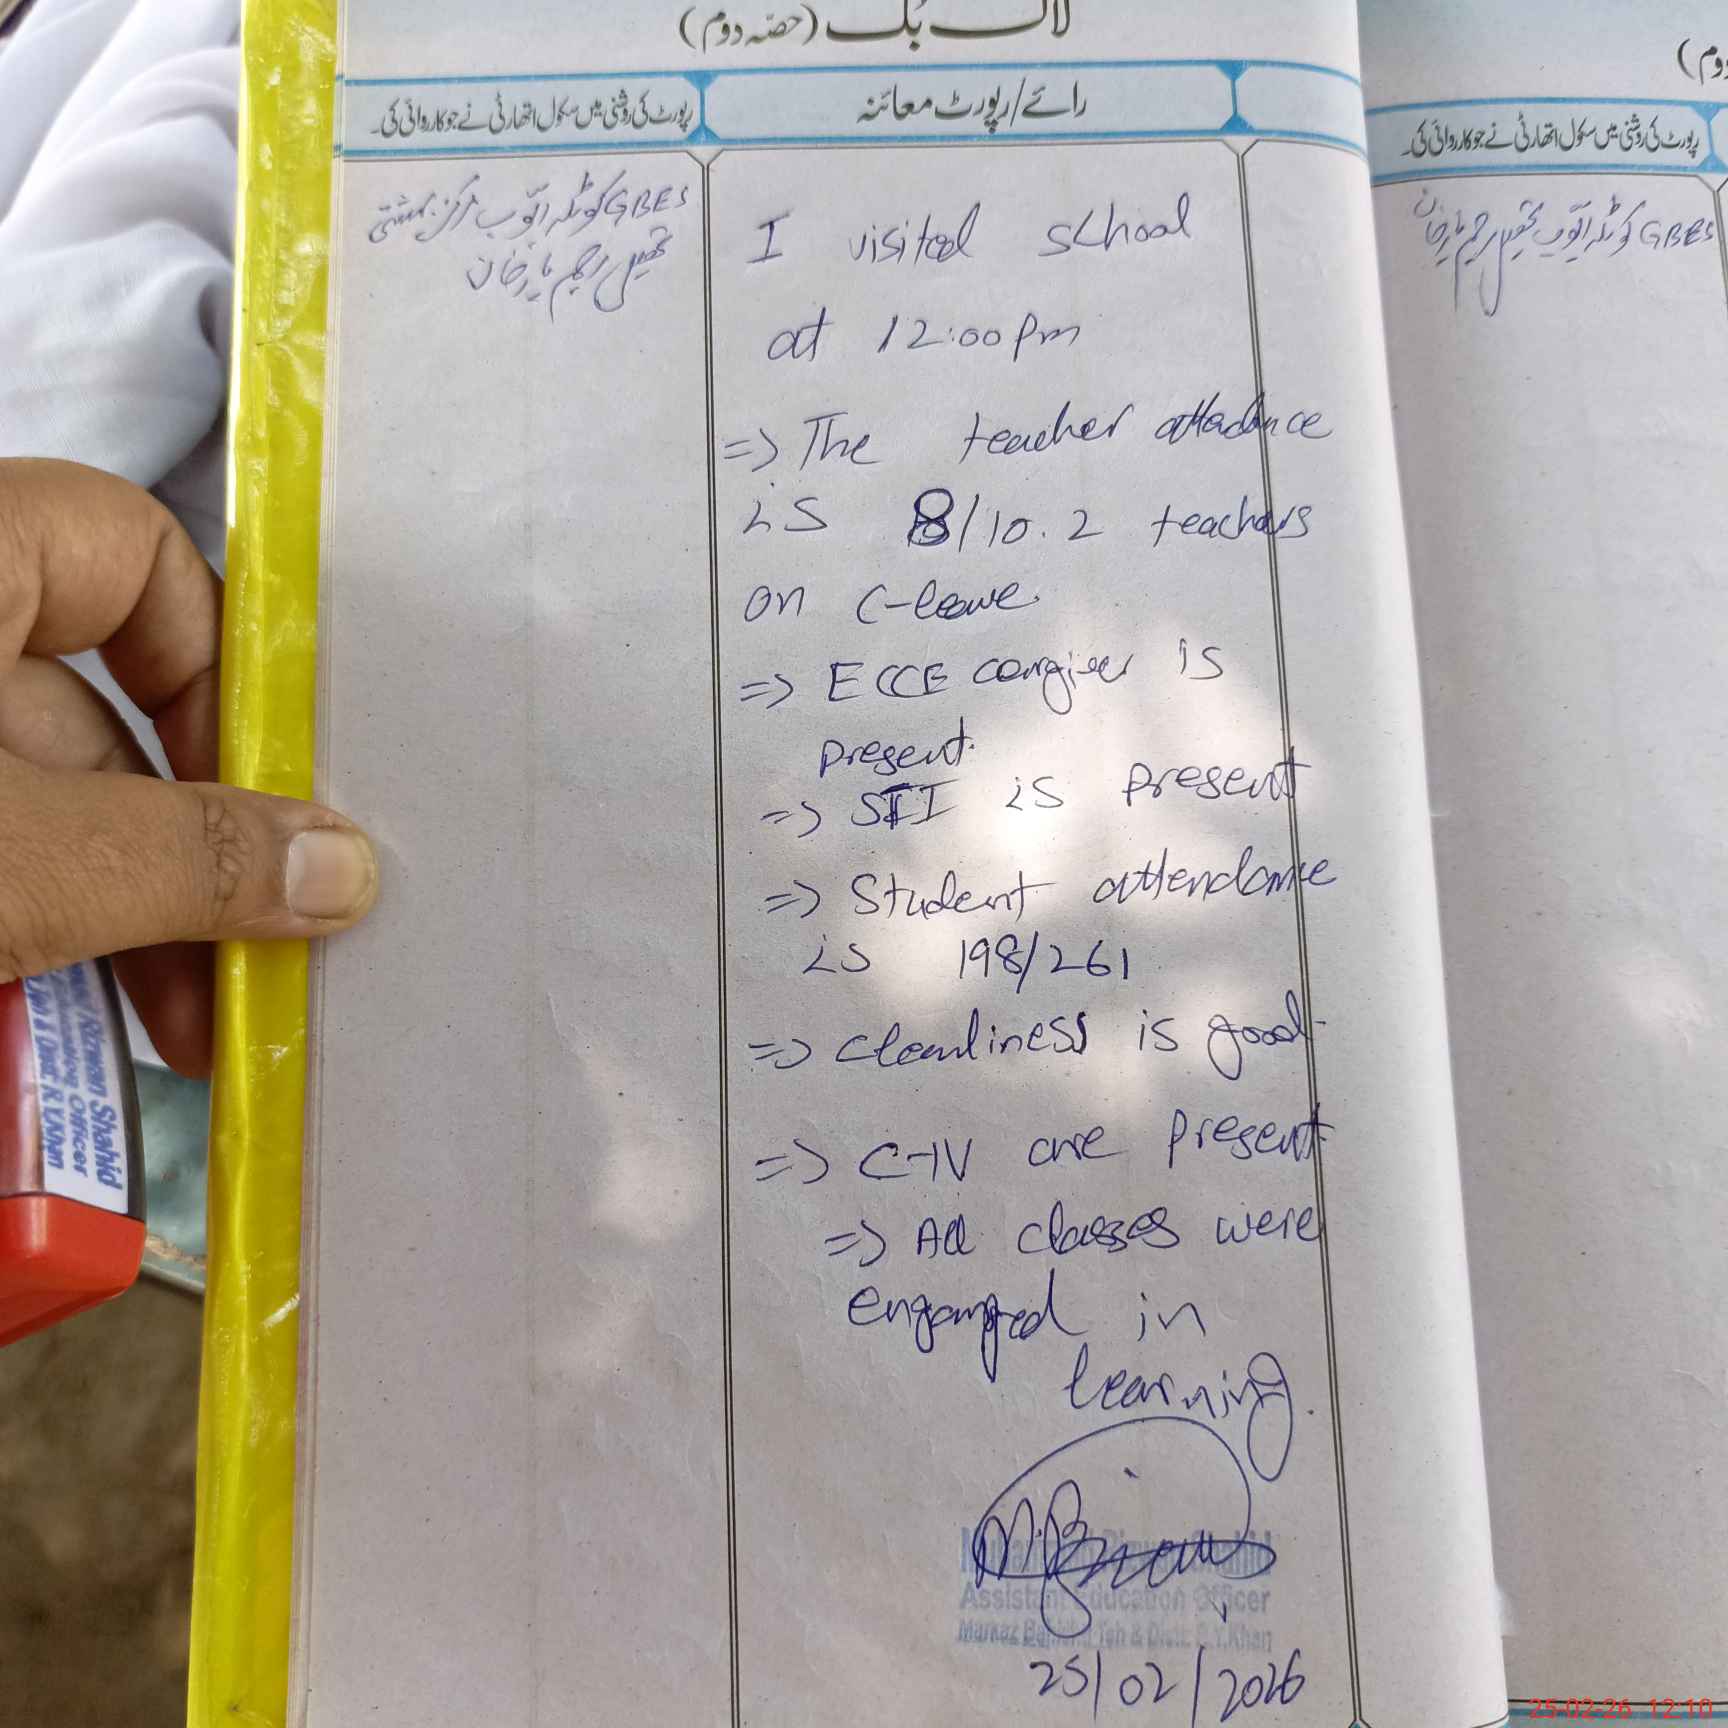 لاگ بک (حصّہ دوم)
رائے/رپورٹ معائنہ
رپورٹ کی روشنی میں سکول اتھارٹی نے جو کاروائی کی۔
GBES کوٹلہ ایّوب مرکز بہشتی
تحصیل رحیم یار خان
I visited school
at 12:00 pm
=> The teacher attadance
is 8/10. 2 teachers
on C-leave.
=> ECCE cargiver is
present.
=> STI is present
=> Student attendance
is 198/261
=> cleanliness is good.
=> C-IV are present.
=> All classes were
enganged in
learning.
Assistant Education Officer
Markaz Teh & Distt: R.Y.Khan
25/02/2026
دوم)
رپورٹ کی روشنی میں سکول اتھارٹی نے جو کاروائی کی۔
GBES کوٹلہ ایّوب تحصیل رحیم یار خان
Rizwan Shahid
Officer
Teh & Distt: R.Y.Khan
25-02-26 12:10